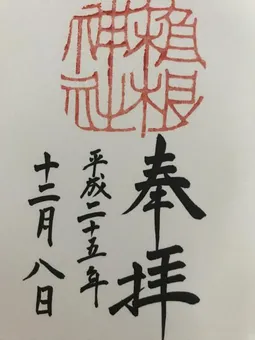 神社
奉拝
平成二十五年
十二月八日